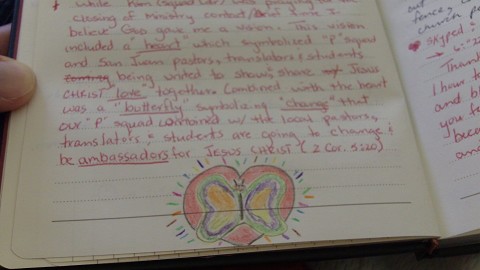 while         (squad         was praying
closing of Ministry contact
believe God gave me a vision. This vision
included a "heart" which symbolized "P" squad
and San Juan pastors, translators & students
being united to share Jesus
CHRIST love together. Combined with the heart
was a "butterfly" symbolizing "change" that
our "P" squad combined w/ the local pastors,
translators, & students are going to change &
be ambassadors for JESUS CHIRST (2 Cor. 5:20)
out
fence,
church
Skyped
Thank
I have to
and bl
you fo
beca
and